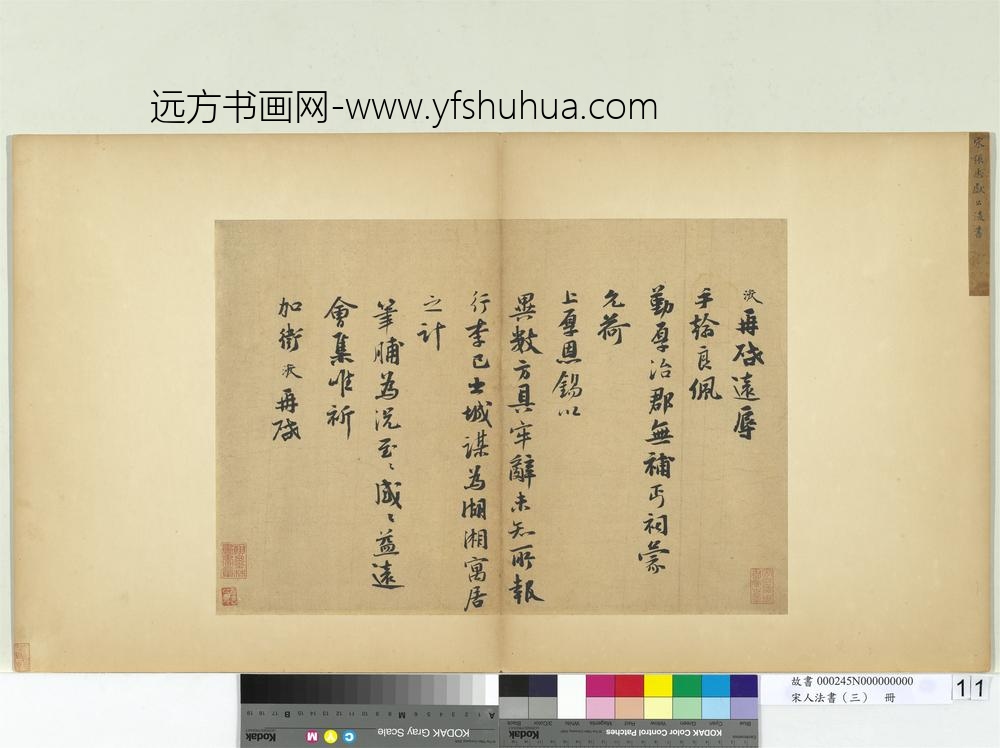 远方书画网-www.yfshuhua.com
浚再啟遠辱
手翰良佩
勤厚治郡無補丐祠蒙
允荷
上厚恩錫以
異數方具牢辭未知所報
行李已出城謀為湖湘寓居
之計
筆脯為況至〻感〻益遠
會集唯祈
加衛浚再啟
故書 000245N000000000
宋人法書（三） 冊
11
KODAK Gray Scale
Kodak
C
Y
M
A 1 2 3 4 5 6 M 8 9 10 11 12 13 14 15 B 17 18 19
KODAK Color Control Patches
Kodak
Blue
Cyan
Green
Yellow
Red
Magenta
White
3/Color
Black